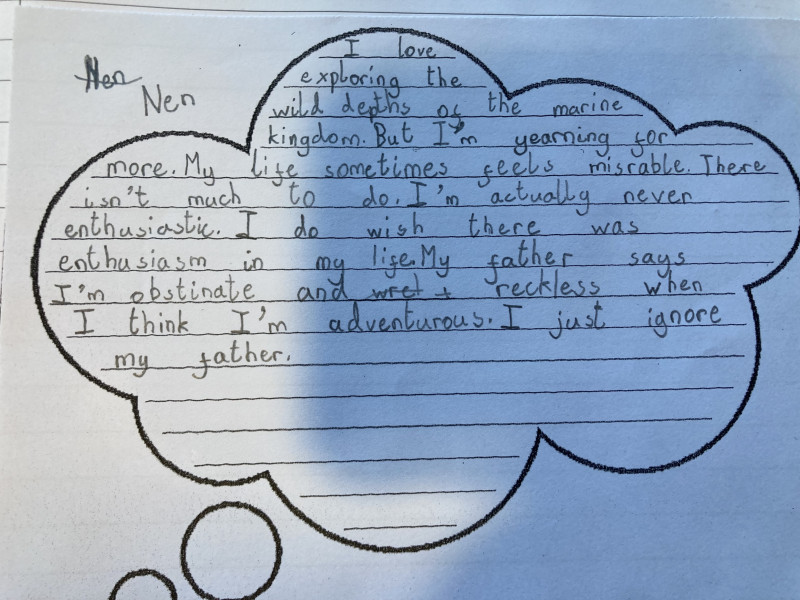 Nen
Nen
I love
exploring the
wild depths of the marine
kingdom. But I'm yearning for
more. My life sometimes feels misrable. There
isn't much to do. I'm actually never
enthusiastic. I do wish there was
enthusiasm in my life. My father says
I'm obstinate and reckless when
I think I'm adventurous. I just ignore
my father.